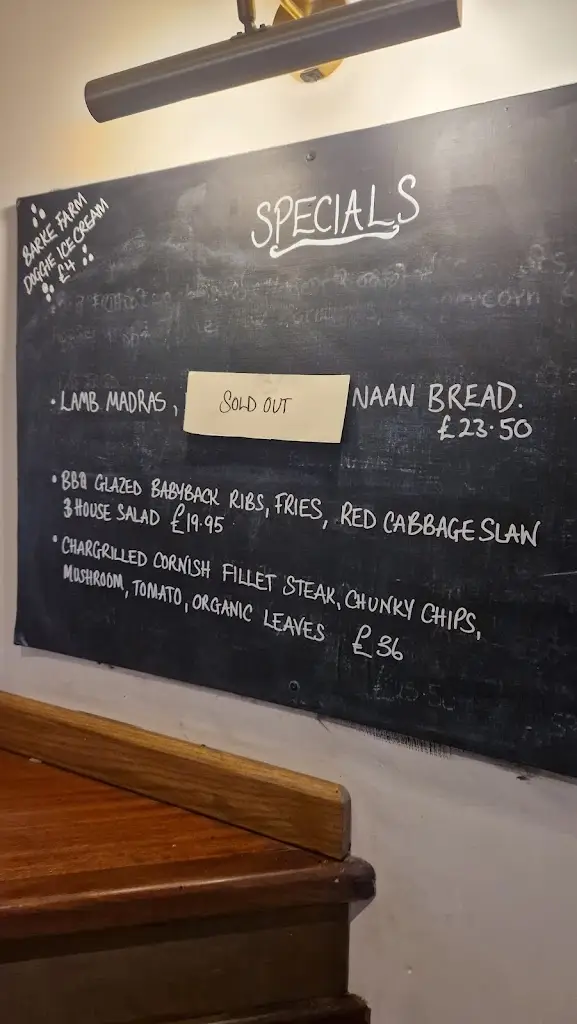 BARKE FARM
DOGGIE ICE CREAM
£4
SPECIALS
• LAMB MADRAS, SOLD OUT NAAN BREAD.
£23.50
• BBQ GLAZED BABYBACK RIBS, FRIES, RED CABBAGE SLAW
& HOUSE SALAD £19.95
• CHARGRILLED CORNISH FILLET STEAK, CHUNKY CHIPS,
MUSHROOM, TOMATO, ORGANIC LEAVES £36